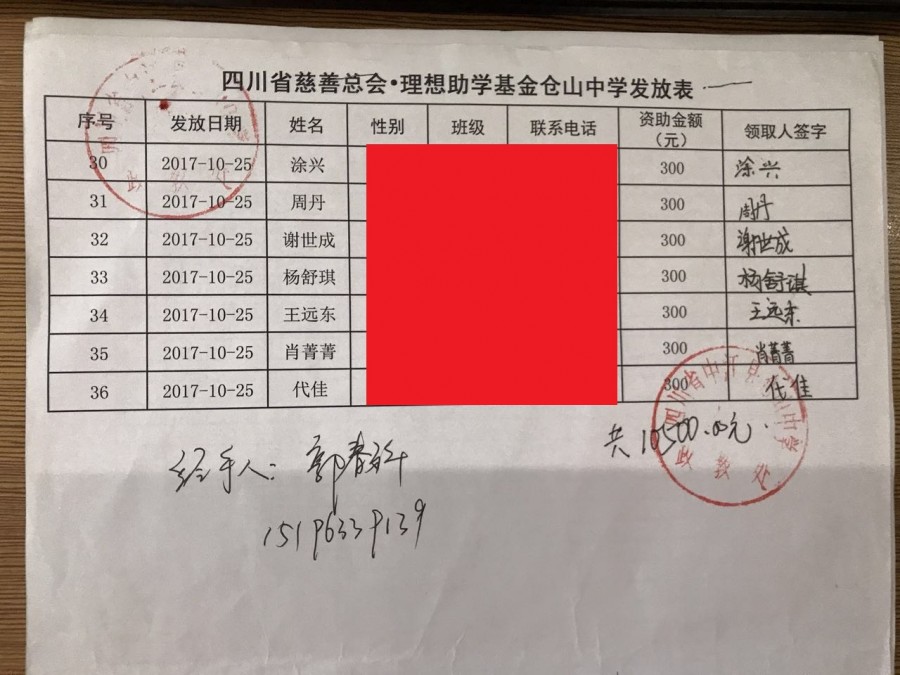 四川省慈善总会•理想助学基金仓山中学发放表
序号 发放日期 姓名 性别 班级 联系电话 资助金额（元） 领取人签字
30 2017-10-25 涂兴 300 涂兴
31 2017-10-25 周丹 300 周丹
32 2017-10-25 谢世成 300 谢世成
33 2017-10-25 杨舒琪 300 杨舒琪
34 2017-10-25 王远东 300 王远东
35 2017-10-25 肖菁菁 300 肖菁菁
36 2017-10-25 代佳 300 代佳
政教处
四川省中江县仓山中学
政教处
共10500.00元.
经手人:郭春
15196339139